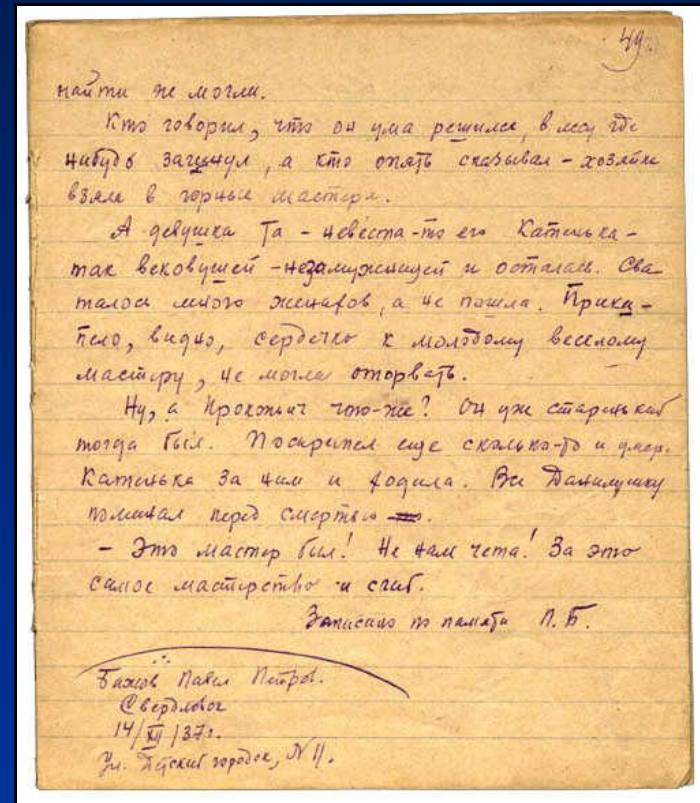 49
найти не могли.
Кто говорил, что он ума решился, в лесу где
нибудь загинул, а кто опять сказывал - хозяйка
взяла в горные мастера.
А девушка та - невеста-то его Катенька -
так вековушей - незамужницей и осталась. Сва-
талось много женихов, а не пошла. Прики-
пело, видно, сердечко к молодому веселому
мастеру, не могла оторвать.
Ну, а Прокопьич что-же? Он уже старенький
тогда был. Поскрипел еще сколько-то и умер.
Катенька за ним и ходила. Все Данилушку
поминал перед смертью.
- Это мастер был! Не нам чета! За это
самое мастерство и сгиб.
Записано по памяти П. Б.
Бажов Павел Петров.
Свердловск
14/XII/37г.
Ул. городок, № 11.